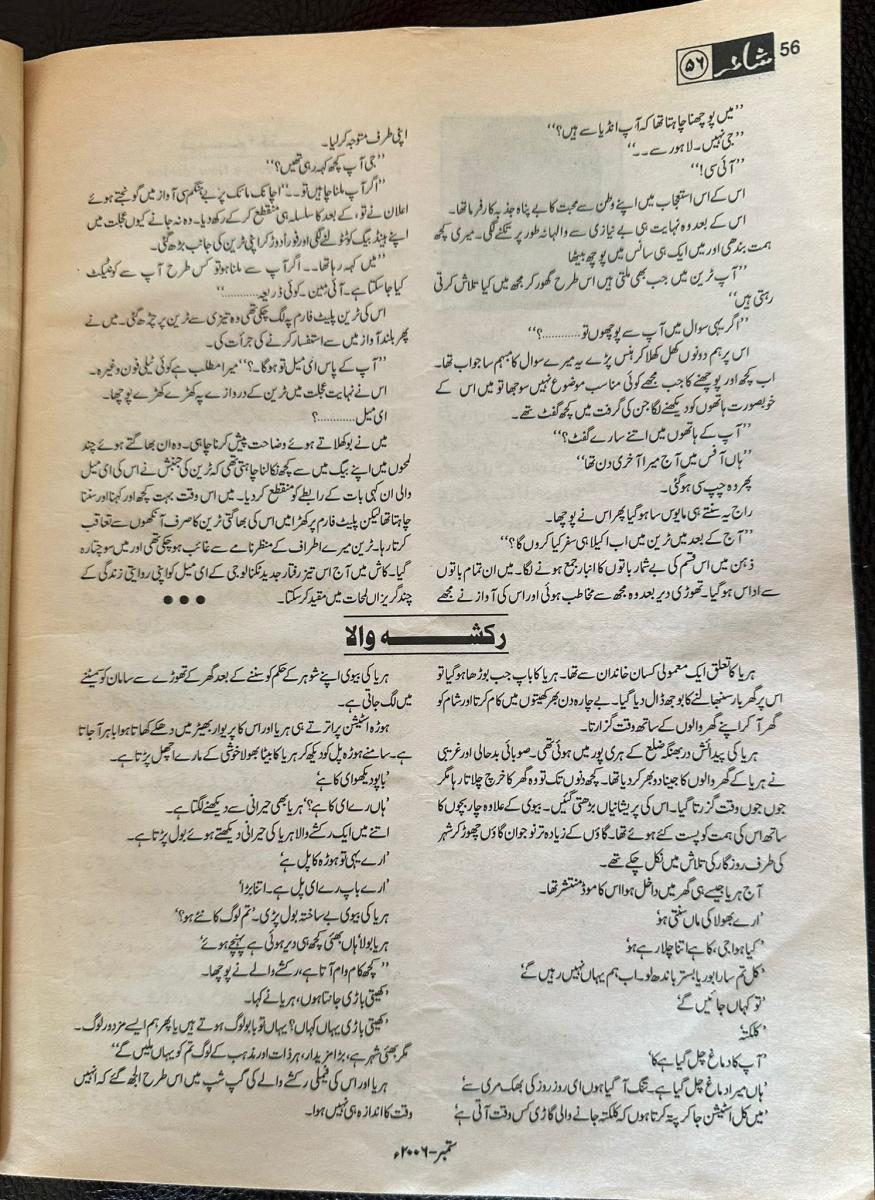 56
شاعر ۵۶
’’میں پوچھنا چاہتا تھا کہ آپ انڈیا سے ہیں؟‘‘
’’جی نہیں۔ لاہور سے۔۔‘‘
’’آئی سی!‘‘
اس کے اس استعجاب میں اپنے وطن سے محبت کا بے پناہ جذبہ کارفرما تھا۔
اس کے بعد وہ نہایت ہی بے نیازی سے والہانہ طور پر تکنے لگی۔ میری کچھ
ہمت بندھی اور میں ایک ہی سانس میں پوچھ بیٹھا
’’آپ ٹرین میں جب بھی ملتی ہیں اس طرح گھور کر مجھ میں کیا تلاش کرتی
رہتی ہیں‘‘
’’اگر یہی سوال میں آپ سے پوچھوں تو............؟‘‘
اس پر ہم دونوں کھل کھلا کر ہنس پڑے یہ میرے سوال کا مبہم سا جواب تھا۔
اب کچھ اور پوچھنے کا جب مجھے کوئی مناسب موضوع نہیں سوجھا تو میں اس کے
خوبصورت ہاتھوں کو دیکھنے لگا جن کی گرفت میں کچھ گفٹ تھے۔
’’آپ کے ہاتھوں میں اتنے سارے گفٹ؟‘‘
’’ہاں آفس میں آج میرا آخری دن تھا‘‘
پھر وہ چپ سی ہو گئی۔
راج یہ سنتے ہی مایوس سا ہو گیا پھر اس نے پوچھا۔
’’آج کے بعد میں ٹرین میں اب اکیلا ہی سفر کیا کروں گا؟‘‘
ذہن میں اس قسم کی بے شمار باتوں کا انبار جمع ہونے لگا۔ میں ان تمام باتوں
سے اداس ہو گیا۔ تھوڑی دیر بعد وہ مجھ سے مخاطب ہوئی اور اس کی آواز نے مجھے
اپنی طرف متوجہ کر لیا۔
’’جی آپ کچھ کہہ رہی تھیں؟‘‘
’’اگر آپ ملنا چاہیں تو۔۔‘‘ اچانک مائک پر بے ہنگم سی آواز میں گونجتے ہوئے
اعلان نے تو، کے بعد کا سلسلہ ہی منقطع کر کے رکھ دیا۔ وہ نہ جانے کیوں عجلت میں
اپنے ہینڈ بیگ کو ٹٹولنے لگی اور فوراً دوڑ کر اپنی ٹرین کی جانب بڑھ گئی۔
’’میں کہہ رہا تھا۔۔ اگر آپ سے ملنا ہو تو کس طرح آپ سے کونٹیکٹ
کیا جا سکتا ہے۔ آئی مین۔ کوئی ذریعہ۔...........‘‘
اس کی ٹرین پلیٹ فارم پہ لگ چکی تھی وہ تیزی سے ٹرین پر چڑھ گئی۔ میں نے
پھر بلند آواز میں سے استفسار کرنے کی جرأت کی۔
’’آپ کے پاس ای میل تو ہوگا۔؟‘‘ میرا مطلب ہے کوئی ٹیلی فون وغیرہ۔
اس نے نہایت عجلت میں ٹرین کے دروازے پہ کھڑے کھڑے پوچھا۔
ای میل............؟
میں نے بوکھلاتے ہوئے وضاحت پیش کرنا چاہی۔ وہ ان بھاگتے ہوئے چند
لمحوں میں اپنے بیگ میں سے کچھ نکالنا چاہتی تھی کہ ٹرین کی جنبش نے اس کی ای میل
والی ان کہی بات کے رابطے کو منقطع کر دیا۔ میں اس وقت بہت کچھ اور کہنا اور سننا
چاہتا تھا لیکن پلیٹ فارم پر کھڑا میں اس کی بھاگتی ٹرین کا صرف آنکھوں سے تعاقب
کرتا رہا۔ ٹرین میرے اطراف کے منظر نامے سے غائب ہو چکی تھی اور میں سوچتا رہ
گیا۔ کاش میں آج اس تیز رفتار جدید ٹکنالوجی کے ای میل کو اپنی روایتی زندگی کے
چند گریزاں لمحات میں مقید کر سکتا۔ ●●●
رکشہ والا
ہریا کا تعلق ایک معمولی کسان خاندان سے تھا۔ ہریا کا باپ جب بوڑھا ہو گیا تو
اس پر گھر بار سنبھالنے کا بوجھ ڈال دیا گیا۔ بے چارہ دن بھر کھیتوں میں کام کرتا اور شام کو
گھر آ کر اپنے گھر والوں کے ساتھ وقت گزارتا۔
ہریا کی پیدائش دربھنگہ ضلع کے ہری پور میں ہوئی تھی۔ صوبائی بدحالی اور غریبی
نے ہریا کے گھر والوں کا جینا دوبھر کر دیا تھا۔ کچھ دنوں تک تو وہ گھر کا خرچ چلاتا رہا مگر
جوں جوں وقت گزرتا گیا۔ اس کی پریشانیاں بڑھتی گئیں۔ بیوی کے علاوہ چار بچوں کا
ساتھ اس کی ہمت کو پست کئے ہوئے تھا۔ گاؤں کے زیادہ تر نوجوان گاؤں چھوڑ کر شہر
کی طرف روزگار کی تلاش میں نکل چکے تھے۔
آج ہریا جیسے ہی گھر میں داخل ہوا اس کا موڈ منتشر تھا۔
’ارے بھولا کی ماں سنتی ہو‘
’کیا ہوا جی، کاہے اتنا چلا رہے ہو‘
’کل تم سارا بوریا بستر باندھ لو۔ اب ہم یہاں نہیں رہیں گے‘
’تو کہاں جائیں گے‘
’کلکتہ‘
’آپ کا دماغ چل گیا ہے کا‘
’ہاں میرا دماغ چل گیا ہے۔ تنگ آ گیا ہوں ای روز روز کی بھک مری سے‘
’میں کل اسٹیشن جا کر پتہ کرتا ہوں کہ کلکتہ جانے والی گاڑی کس وقت آتی ہے‘
ہریا کی بیوی اپنے شوہر کے حکم کو سننے کے بعد گھر کے تھوڑے سے سامان کو سمیٹنے
میں لگ جاتی ہے۔
ہوڑہ اسٹیشن پر اترتے ہی ہریا اور اس کا پریوار بھیڑ میں دھکے کھاتا ہوا باہر آ جاتا
ہے۔ سامنے ہوڑہ پل کو دیکھ کر ہریا کا بیٹا بھولا خوشی کے مارے اچھل پڑتا ہے۔
’باپو دیکھو ای کا ہے‘
’ہاں رے ای کا ہے؟‘ ہریا بھی حیرانی سے دیکھنے لگتا ہے۔
اتنے میں ایک رکشے والا ہریا کی حیرانی دیکھتے ہوئے بول پڑتا ہے۔
’ارے یہی تو ہوڑہ کا پل ہے‘
’ارے باپ رے ای پل ہے۔ اتنا بڑا‘
ہریا کی بیوی بے ساختہ بول پڑی۔ ’تم لوگ کا نئے ہو؟‘
ہریا بولا ’ہاں بھئی کچھ ہی دیر ہوئی ہے پہنچے ہوئے‘
’’کچھ کام وام آتا ہے، رکشے والے نے پوچھا۔
’کھیتی باڑی جانتا ہوں، ہریا نے کہا۔
’کھیتی باڑی یہاں کہاں؟ یہاں تو بابو لوگ ہوتے ہیں یا پھر ہم ایسے مزدور لوگ۔
مگر بھئی شہر ہے، بڑا مزیدار، ہر ذات اور مذہب کے لوگ تم کو یہاں ملیں گے‘‘
ہریا اور اس کی فیملی رکشے والے کی گپ شپ میں اس طرح الجھ گئے کہ انہیں
وقت کا اندازہ ہی نہیں ہوا۔
ستمبر-۲۰۰۶ء